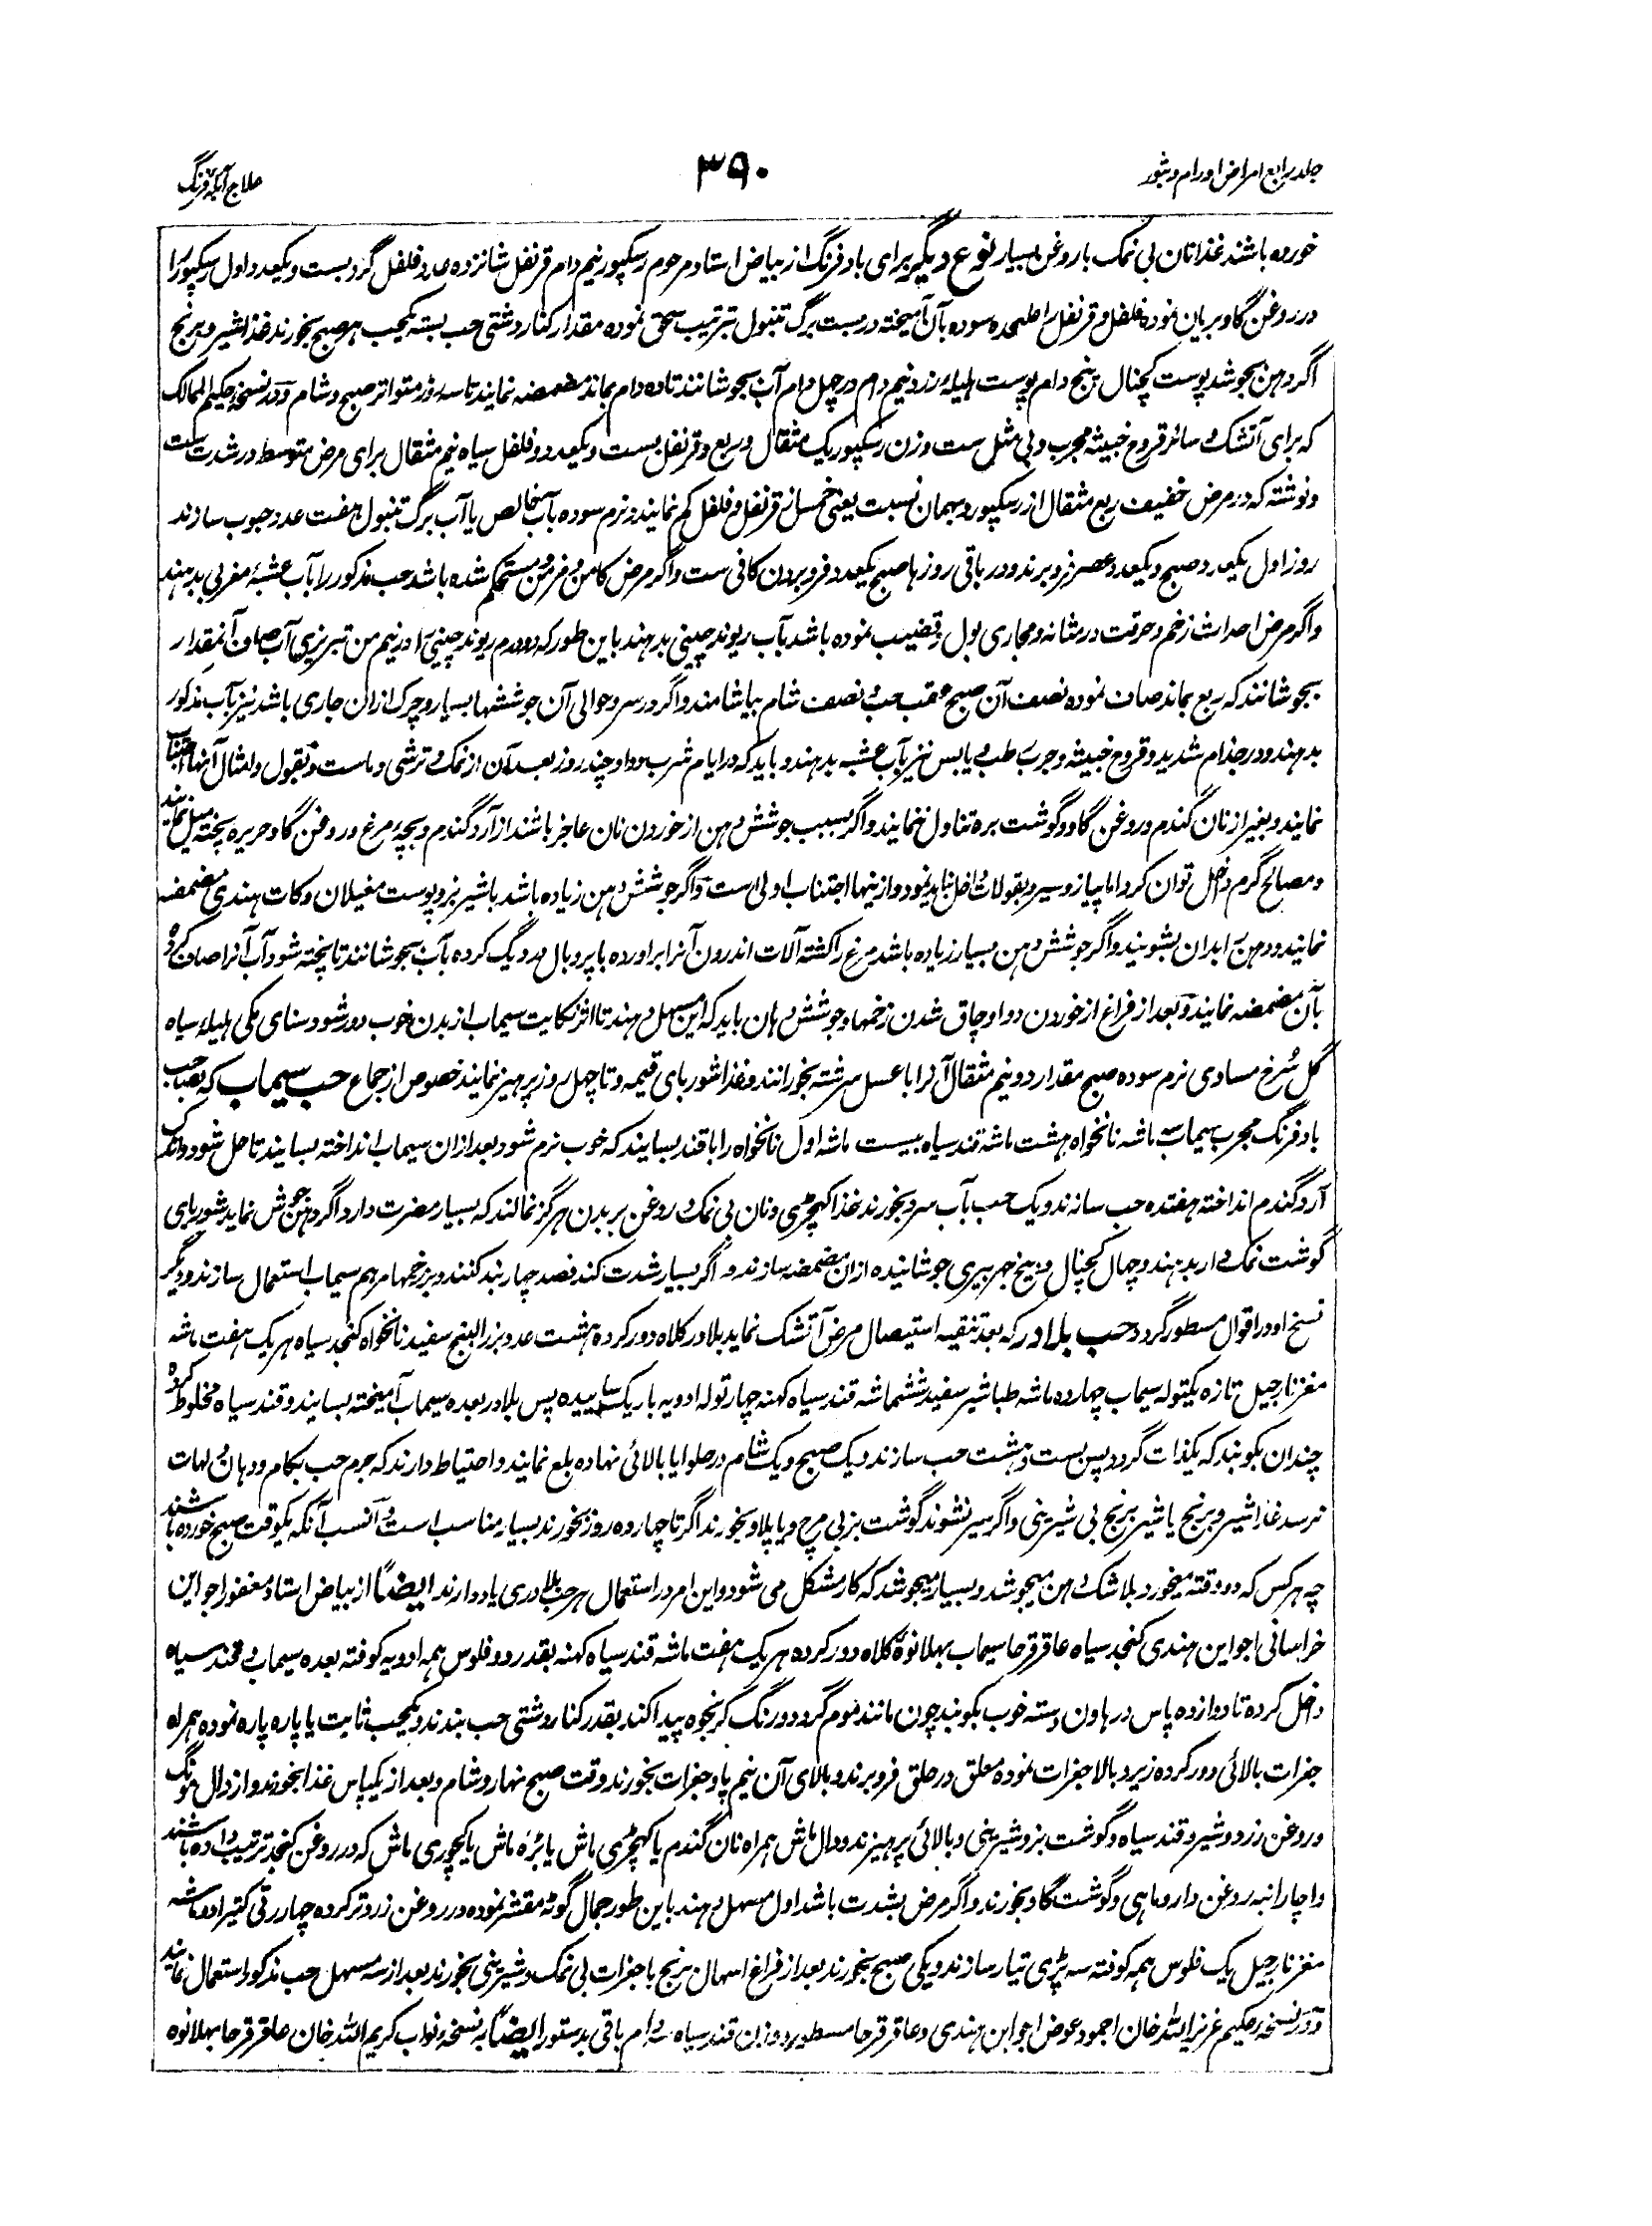 جلد رابع امراض اورام و بثور
۳۹۰
علاج آبله فرنگ
خورده باشند غذا نان بی نمک با روغن بسیار نوع دیگر برای باد فرنگ از بیاض استاد مرحوم رسکپور نیم دام قرنفل شانزده عدد فلفل گرد بست و یکعدد اول رسکپور را
در روغن گاو بریان نموده فلفل و قرنفل را علحده سوده بآن آمیخته در بست برگ تنبول بترتیب سحق نموده مقدار کنار دشتی حب بسته یکحب هر صبح بخورند غذا شیر و برنج
اگر دهن بجوشد پوست کچنال پنج دام پوست هلیله زرد نیم دام در چهل دام آب بجوشانند تا ده دام بماند مضمضه نمایند تا سه روز متواتر صبح و شام و در نسخه حکیم الممالک
که برای آتشک و سائر قروح خبیثه مجرب و بی مثل ست وزن رسکپور یک مثقال و ربع و قرنفل بست و یکعدد و فلفل سیاه نیم مثقال برای مرض متوسط در شدت ست
و نوشته که در مرض خفیف ربع مثقال از رسکپور و بهمان نسبت یعنی خمس از قرنفل و فلفل کم نمایند و نرم سوده بآب خالص یا آب برگ تنبول هفت عدد حبوب سازند
روز اول یکعدد صبح و یکعدد عصر فرو برند و در باقی روزها صبح یکعدد فرو بردن کافی ست و اگر مرض کامن و مزمن و مستحکم شده باشد حب مذکور را بآب عشبهٔ مغربی بدهند
و اگر مرض احداث زخم و حرقت در مثانه و مجاری بول و قضیب نموده باشد بآب ریوند چینی بدهند باین طور که دو درم ریوند چینی را در نیم من تبریزی آب صاف آنمقدار
بجوشانند که ربع بماند صاف نموده نصف آن صبح عقب حب و نصف شام بیاشامند و اگر در سر و حوالی آن جوششها بسیار و چرک ازان جاری باشد نیز بآب مذکور
بدهند و در جذام شدید و قروح خبیثه و جرب رطب و یابس نیز بآب عشبه بدهند و باید که در ایام شرب دوا و چند روز بعد آن از نمک و ترشی و ماست و بقول و امثال آنها اجتناب
نمایند و بغیر از نان گندم و روغن گاو و گوشت بره تناول ننمایند و اگر بسبب جوشش دهن از خوردن نان عاجز باشند از آرد گندم و بچهٔ مرغ و روغن گاو حریره پخته میل نمایند
و مصالح گرم داخل توان کرد اما پیاز و سیر و بقولات داخل نباید نمود و ازینها اجتناب اولی است و اگر جوشش دهن زیاده باشد باشیر بز و پوست مغیلان و کات هندی مضمضه
نمایند و دهن را بدان بشویند و اگر جوشش دهن بسیار زیاده باشد مرغ را کشته آلات اندرون آنرا برآورده با پر و بال در دیگ کرده بآب بجوشانند تا پخته شود آب آنرا صاف کرده
بآن مضمضه نمایند و بعد از فراغ از خوردن دوا و چاق شدن زخمها و جوشش دهان باید که این مسهل دهند تا اثر نکایت سیماب از بدن خوب دور شود سنای مکی هلیله سیاه
گل سرخ مساوی نرم سوده صبح مقدار دو نیم مثقال آنرا با عسل سرشته بخورانند و غذا شوربای قیمه و تا چهل روز پرهیز نمایند خصوص از جماع حب سیماب که بصاحب
باد فرنگ مجرب سیماب سه ماشه نانخواه هشت ماشه قند سیاه بیست ماشه اول نانخواه را با قند بسایند که خوب نرم شود بعد ازان سیماب انداخته بسایند تا حل شود و اندک
آرد گندم انداخته هفتده حب سازند و یک حب بآب سرد بخورند غذا کهچڑی و نان بی نمک و روغن بر بدن هرگز نمالند که بسیار مضرت دارد اگر دهن جوش نماید شوربای
گوشت نمک دار بدهند و چهال کچنال و بیخ جهربیری جوشانیده ازان مضمضه سازند و اگر بسیار شدت کند فصد چهار بند کنند و بر زخمها مرهم سیماب استعمال سازند و دیگر
نسخ او در اقوال مسطور گردد حب بلادر که بعد تنقیه استیصال مرض آتشک نماید بلادر کلاه دور کرده هشت عدد بزرالبنج سفید نانخواه کنجد سیاه هر یک هفت ماشه
مغز نارجیل تازه یکتوله سیماب چهارده ماشه طباشیر سفید ششماشه قند سیاه کهنه چهار توله ادویه باریک سائیده پس بلادر بعده سیماب آمیخته بسایند و قند سیاه مخلوط کرده
چندان بکوبند که یکذات گردد پس بست و هشت حب سازند و یک صبح و یک شام در حلوا یا بالائی نهاده بلع نمایند و احتیاط دارند که جرم حب بکام و دهان و لهات
نرسد غذا شیر و برنج یا شیر برنج بی شیرینی و اگر سیر نشوند گوشت بز بی مرچ و یا پلاو بخورند اگر تا چهارده روز بخورند بسیار مناسب است و آنسب آنکه یکوقت صبح خورده باشند
چه هر کس که دو وقته میخورد بلاشک دهن میجوشد و بسیار میجوشد که کار مشکل می شود و این امر در استعمال هر حب بلادری یاد دارند ایضاً از بیاض استاد مغفور اجواین
خراسانی اجواین هندی کنجد سیاه عاقرقرحا سیماب بهلانوه کلاه دور کرده هر یک هفت ماشه قند سیاه کهنه بقدر دو فلوس همه ادویه کوفته بعده سیماب و قند سیاه
داخل کرده تا دوازده پاس در هاون دسته خوب بکوبند چون مانند موم گردد و رنگ کرنجوه پیدا کند بقدر کنار دشتی حب بندند و یکحب ثابت یا پاره پاره نموده همراه
جغرات بالائی دور کرده زیر و بالا جغرات نموده معلق در حلق فرو برند و بالای آن نیم پاو جغرات بخورند وقت صبح نهار و شام و بعد از یکپاس غذا بخورند و از دال مونگ
و روغن زرد و شیر و قند سیاه و گوشت بز و شیرینی و بالائی پرهیزند و دال ماش همراه نان گندم یا کهچڑی ماش یا بڑه ماش یا کچوری ماش که در روغن کنجد ترتیب داده باشند
و اچار انبه روغن دار و ماهی و گوشت گاو بخورند و اگر مرض بشدت باشد اول مسهل دهند باین طور جمال گوٹه مقشر نموده در روغن زرد تر کرده چهار رتی کتیرا دو ماشه
مغز نارجیل یک فلوس همه کوفته سه پڑی تیار سازند و یکی صبح بخورند بعد از فراغ اسهال برنج با جغرات بی نمک و شیرینی بخورند بعد از سه مسهل حب مذکور استعمال نمایند
و در نسخه حکیم عزیز الله خان اجمود عوض اجواین هندی و عاقرقرحا مسطور و وزن قند سیاه دام باقی بدستور ایضاً به نسخه نواب کریم الله خان عاقرقرحا بهلانوه